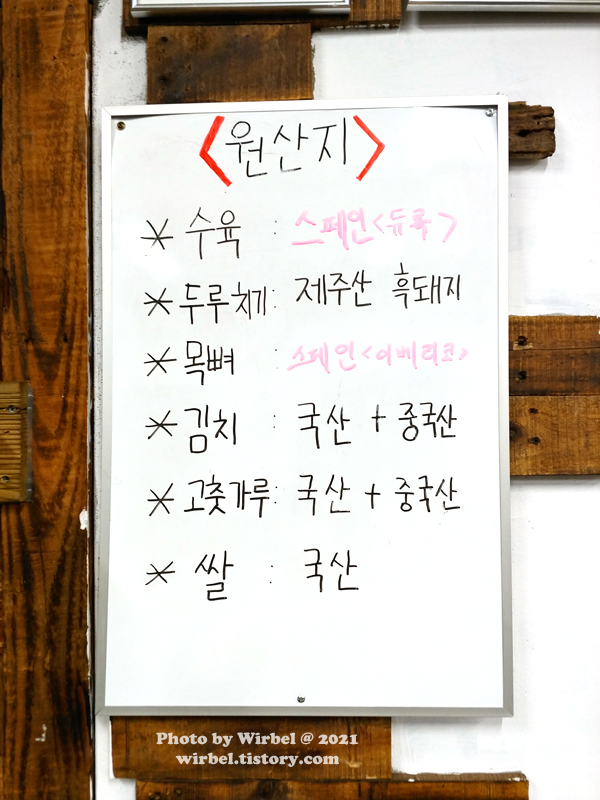 <원산지>
* 수육 : 스페인<듀록>
* 두루치기 : 제주산 흑돼지
* 목뼈 : 스페인<이베리코>
* 김치 : 국산 + 중국산
* 고춧가루 : 국산 + 중국산
* 쌀 : 국산
Photo by Wirbel @ 2021
wirbel.tistory.com